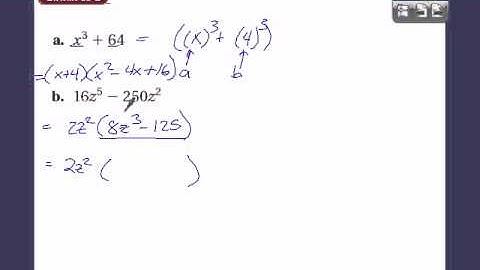 a. x³ + 64 = ((x)³ + (4)³)
= (x+4)(x² - 4x + 16) a b
b. 16z⁵ − 250z²
= 2z² (8z³ - 125)
= 2z² ( )